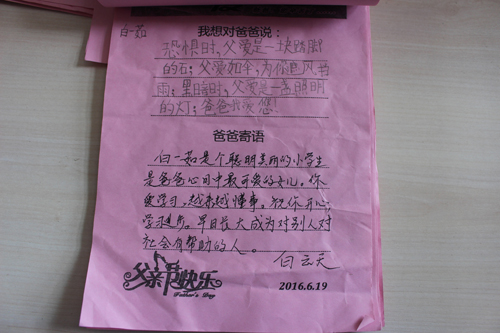 白一茹
我想对爸爸说：
恐惧时，父爱是一块踏脚
的石；父爱如伞，为你遮风挡
雨；黑暗时，父爱是一盏照明
的灯；爸爸我爱您！
爸爸寄语
白一茹是个聪明美丽的小学生
是爸爸心目中最可爱的女儿。你
爱学习，越来越懂事。祝你开心，
学习进步。早日长大成为对别人对
社会有帮助的人。
白云天
父亲节快乐
Father's Day
2016.6.19